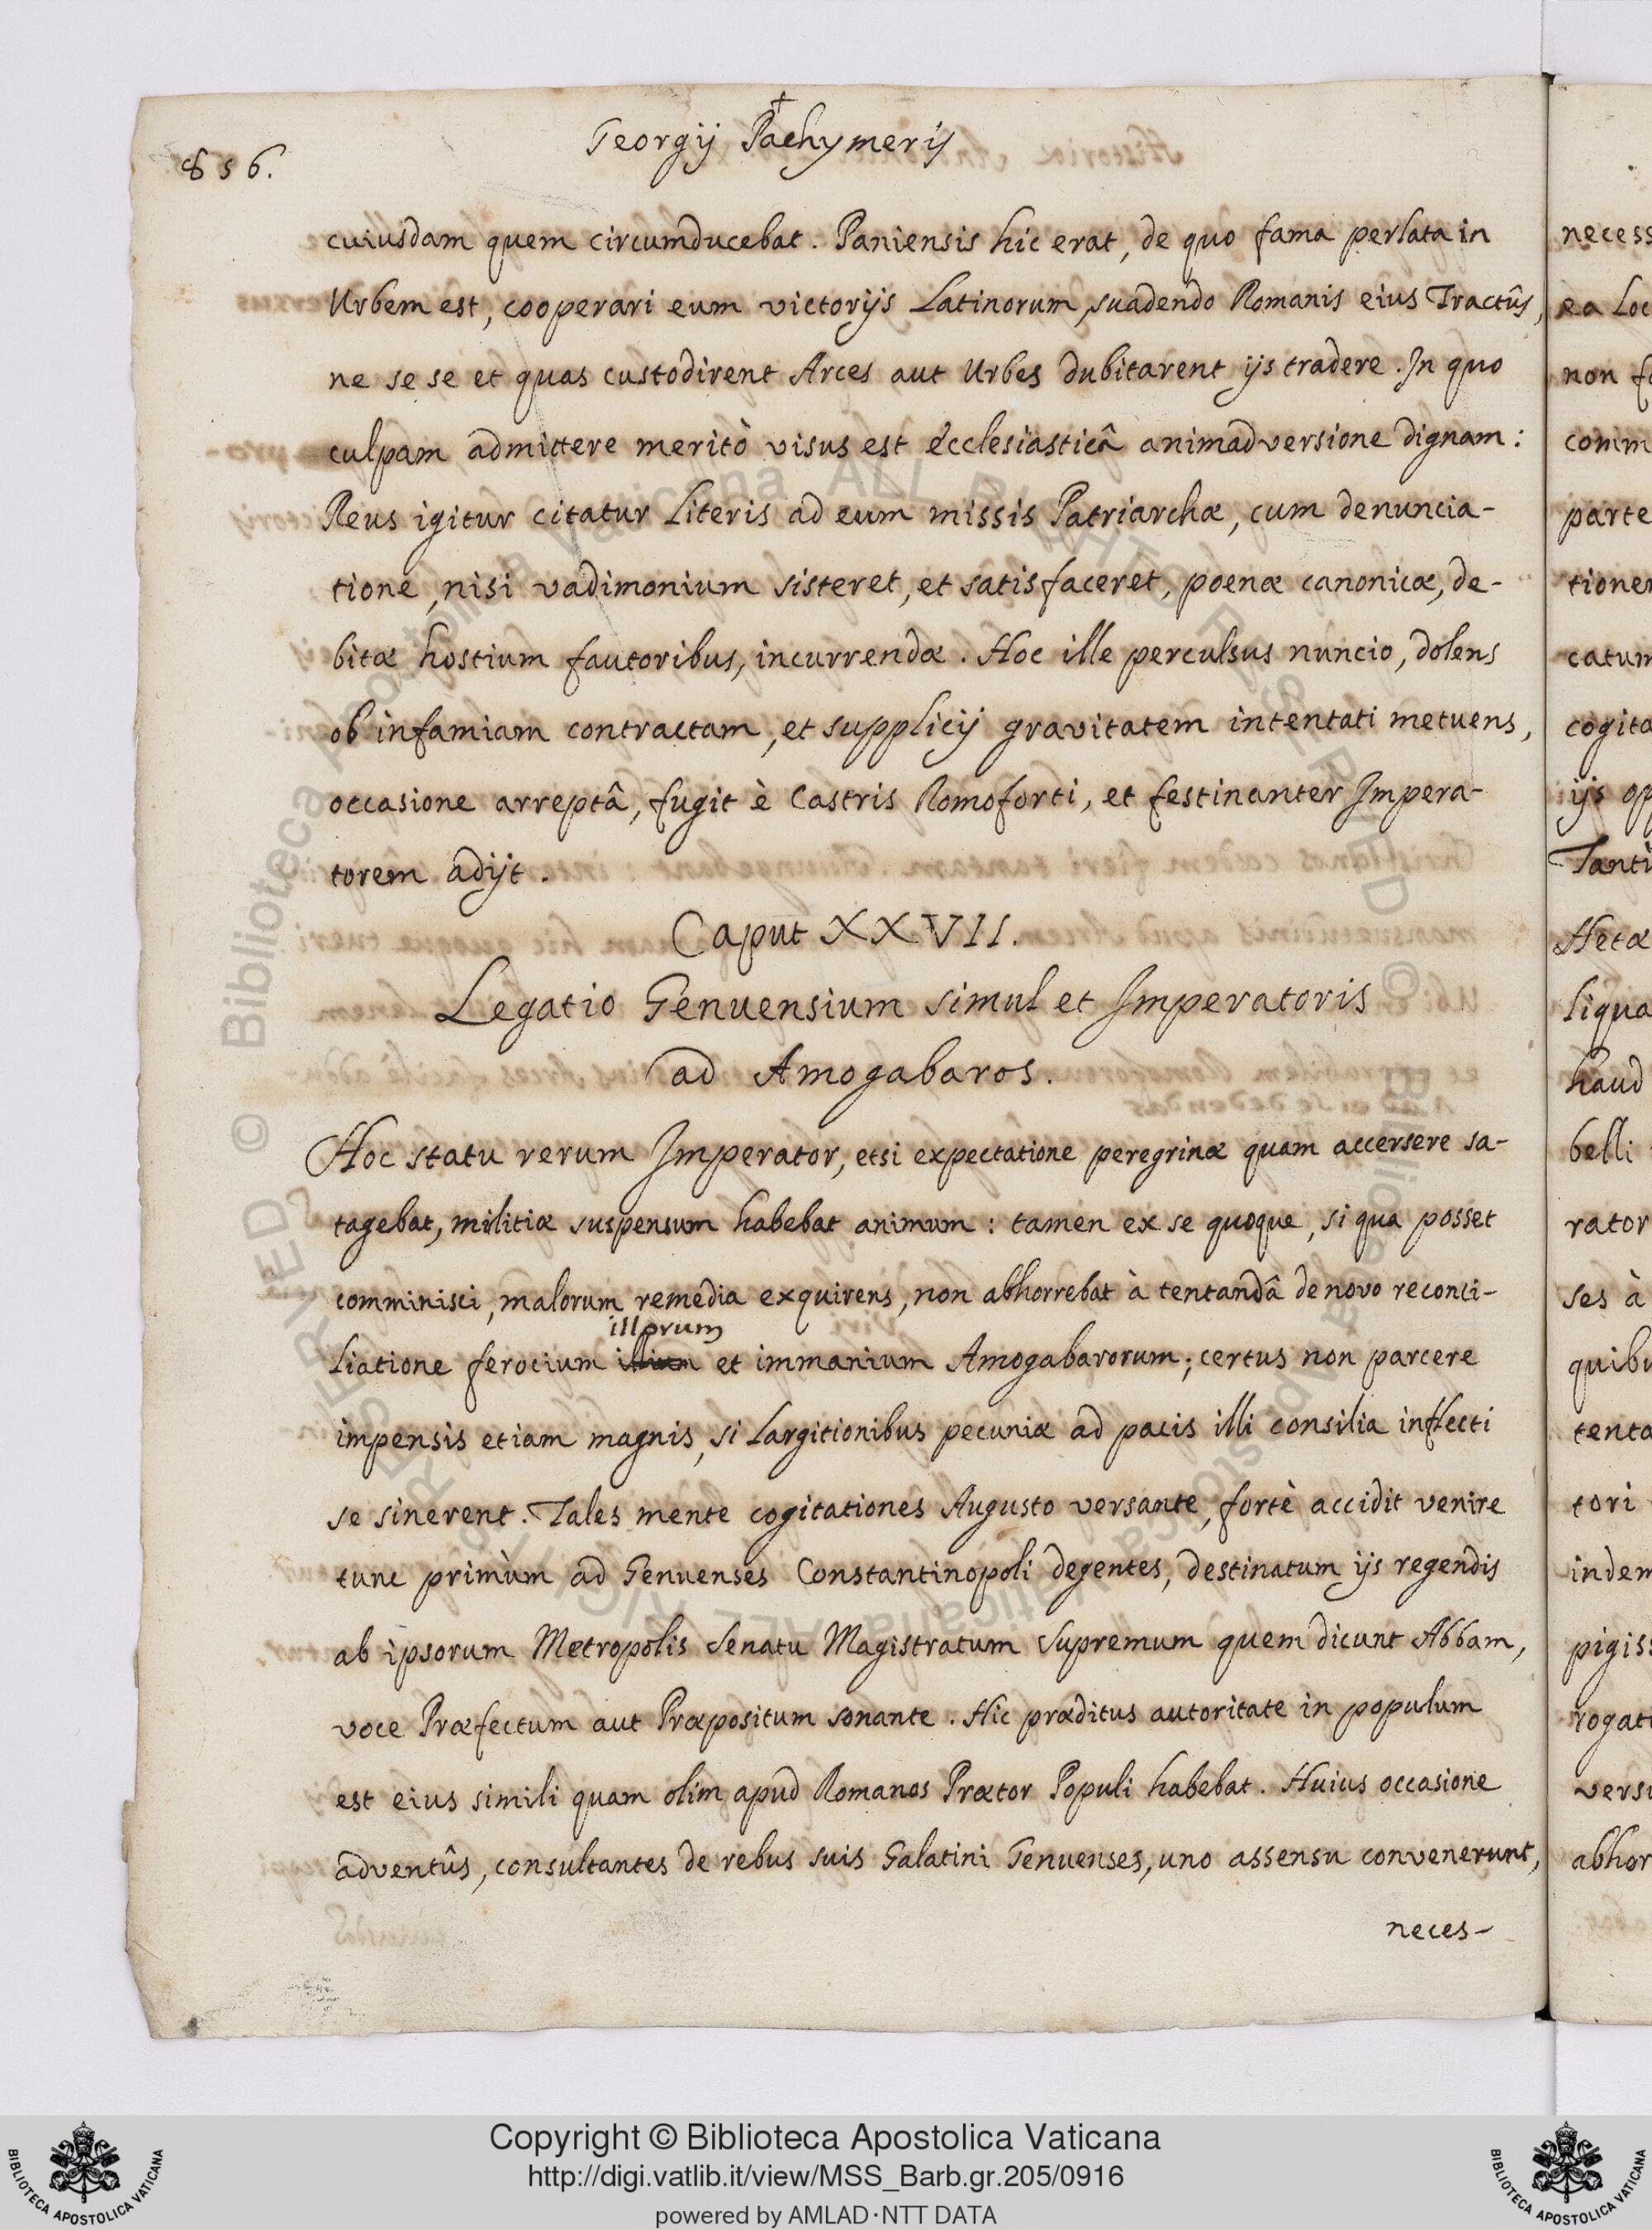 Georgij Pachymerij
856.
cuiusdam quem circumducebat. Paniensis hic erat, de quo fama perlata in
Urbem est, cooperari eum victorijs Latinorum, suadendo Romanis eius Tractûs,
ne se se et quas custodirent Arces aut Urbes dubitarent ijs tradere. In quo
culpam admittere meritò visus est ecclesiasticâ animadversione dignam:
Reus igitur citatur Literis ad eum missis Patriarchæ, cum denuncia-
tione, nisi vadimonium sisteret, et satisfaceret, poenæ canonicæ, de-
bitæ hostium fautoribus, incurrendæ. Hoc ille perculsus nuncio, dolens
ob infamiam contractam, et supplicij gravitatem intentati metuens,
occasione arreptâ, fugit è Castris Romoforti, et festinanter Impera-
torem adijt.
Caput XXVII.
Legatio Genuensium simul et Imperatoris
ad Amogabaros.
Hoc statu rerum Imperator, etsi expectatione peregrinæ quam accersere sa-
tagebat, militiæ suspensum habebat animum: tamen ex se quoque, si qua posset
comminisci, malorum remedia exquirens, non abhorrebat à tentandâ de novo reconci-
illorum
liatione ferocium et immanium Amogabarorum; certus non parcere
impensis etiam magnis, si largitionibus pecuniæ ad pacis illi consilia inflecti
se sinerent. Tales mente cogitationes Augusto versante, fortè accidit venire
tunc primùm ad Genuenses Constantinopoli degentes, destinatum ijs regendis
ab ipsorum Metropolis Senatu Magistratum Supremum quem dicunt Abbam,
voce Præfectum aut Præpositum sonante. Hic præditus autoritate in populum
est eius simili quam olim apud Romanos Prætor Populi habebat. Huius occasione
adventûs, consultantes de rebus suis Galatini Genuenses, uno assensu convenerunt,
neces-
necess
ea Loc
non f
comm
parte
tione
catum
cogita
ijs op
Tanti
Hetæ
liqua
haud
belli
rator
ses à
quibu
tenta
tori
indem
pigiss
rogati
versu
abhor
© Biblioteca Apostolica Vaticana ALL RIGHTS RESERVED
© Biblioteca Apostolica Vaticana ALL RIGHTS RESERVED
Copyright © Biblioteca Apostolica Vaticana
http://digi.vatlib.it/view/MSS_Barb.gr.205/0916
powered by AMLAD·NTT DATA
BIBLIOTECA APOSTOLICA VATICANA
BIBLIOTECA APOSTOLICA VATICANA